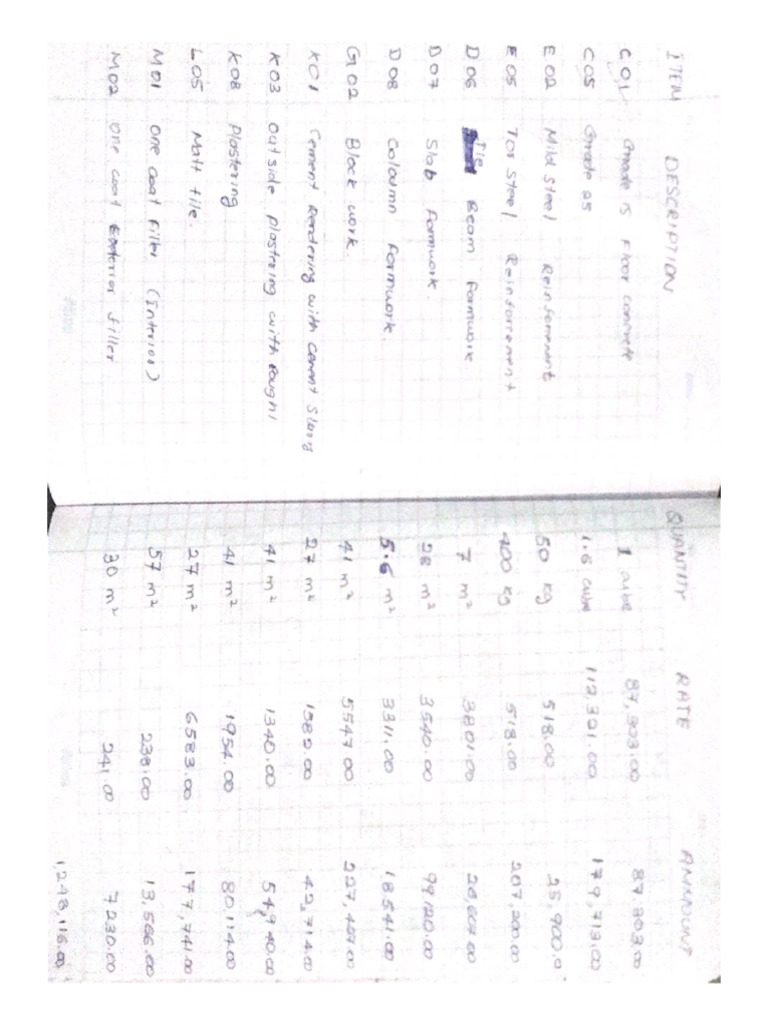 ITEM DESCRIPTION QUANTITY RATE AMMOUNT
C01 Grade 15 Floor concrete 1 cube 87,303.00 87,303.00
C05 Grade 25 1.6 cube 112,321.00 179,713.00
E02 Mild Steel Reinforcement 50 kg 518.00 25,900.0
E05 Tor Steel Reinforcement 400 kg 518.00 207,200.00
D06 Tie Beam formwork 7 m² 3801.00 26607.00
D07 Slab formwork. 28 m² 3540.00 99120.00
D08 Coloumn formwork. 5.6 m² 3311.00 18541.00
G02 Block work. 41 m² 5547.00 227,427.00
K01 Cement Rendering with cement Slarry 27 m² 1582.00 42,714.00
K03 Out side plastering with rough 41 m² 1340.00 54,940.00
K08 Plastering 41 m² 1954.00 80,114.00
L05 Matt tile. 27 m² 6583.00 177,741.00
M01 One coat Filler (Interior) 57 m² 238.00 13,566.00
M02 One coat Exterior filler 30 m² 241.00 7230.00
1,248,116.00